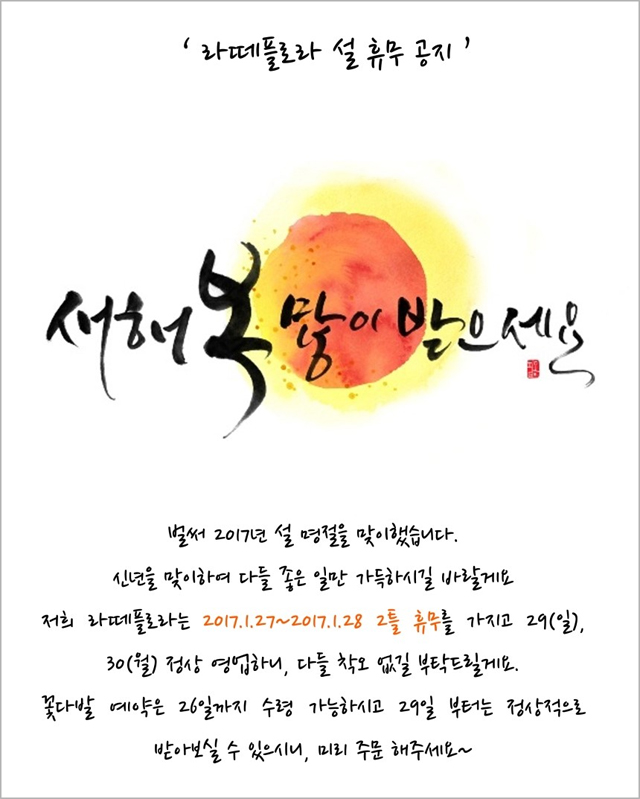 ‘ 라떼플로라 설 휴무 공지 ’
새해 복 많이 받으세요
벌써 2017년 설 명절을 맞이했습니다.
신년을 맞이하여 다들 좋은 일만 가득하시길 바랄게요
저희 라떼플로라는 2017.1.27~2017.1.28 2틀 휴무를 가지고 29(일),
30(월) 정상 영업하니, 다들 착오 없길 부탁드릴게요.
꽃다발 예약은 26일까지 수령 가능하시고 29일 부터는 정상적으로
받아보실 수 있으시니, 미리 주문 해주세요~